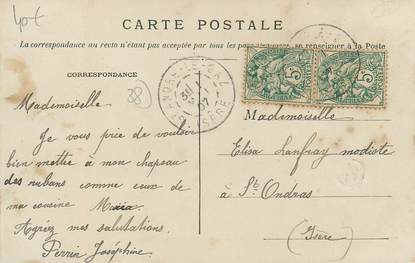 40t
CARTE POSTALE
La correspondance au recto n'étant pas acceptée par tous les pays étrangers, se renseigner à la Poste
CORRESPONDANCE
88
Mademoiselle
Je vous prie de vouloir
bien mettre à mon chapeau
des rubans comme ceux de
ma cousine Maria
Agréez mes salutations.
Perrin Joséphine
ISERE
5
5
Mademoiselle
Elisa Lanfray modiste
à St Ondras
(Isère)